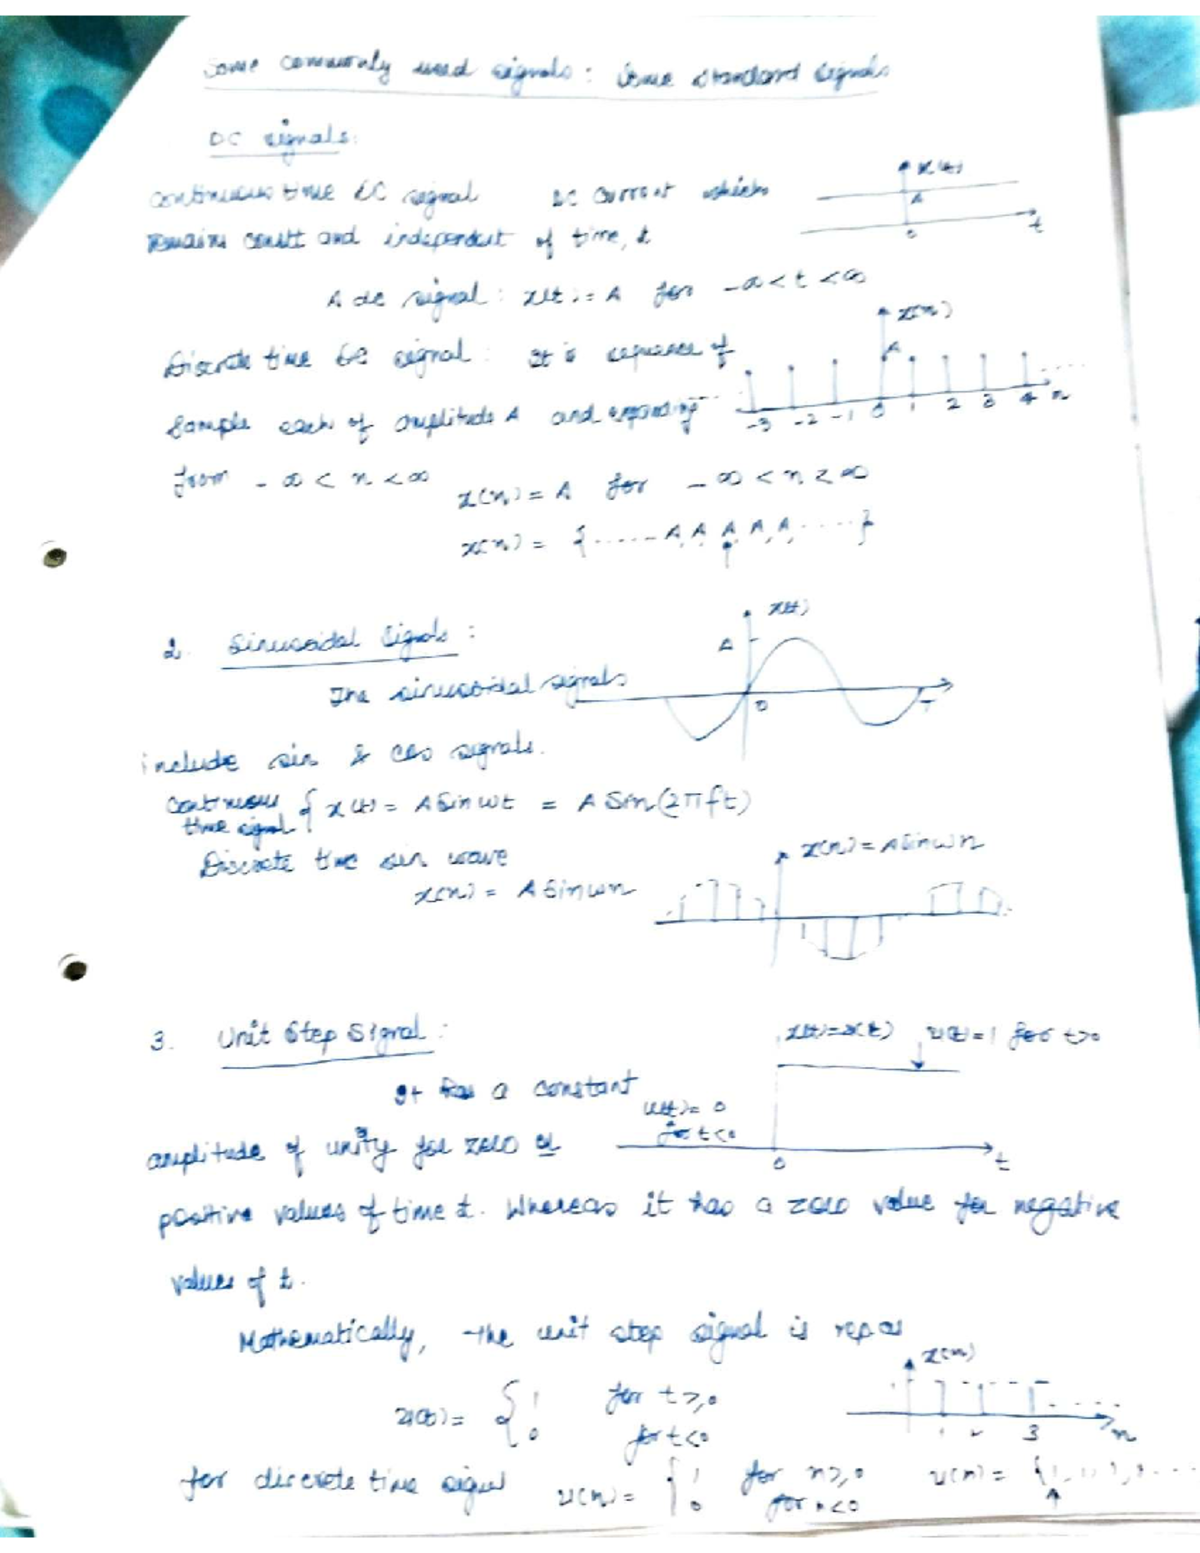 Some commonly used signals : Some standard signals
DC signals:
Continuous time DC signal DC current which
remains constt and independent of time, t
x(t)
A
0
t
A dc signal : x(t) = A for -∞ < t < ∞
Discrete time DC signal : It is sequence of
x(n)
A
Sample each of amplitude A and expanding
-3 -2 -1 0 1 2 3 4 n
from -∞ < n < ∞
x(n) = A for -∞ < n < ∞
x(n) = {...... A, A, A, A, A, .....}
2. Sinusoidal Signals :
x(t)
A
The sinusoidal signals
0
T
include sin & cos signals.
Continuous time signal { x(t) = A Sin wt = A Sin (2πft)
Discrete time sin wave
x(n) = A Sin wn
x(n) = A Sin wn
3. Unit Step Signal :
u(t) = 1 for t>0
It has a constant
u(t) = 0
for t<0
amplitude of unity for zero or
0
t
positive values of time t. Whereas it has a zero value for negative
values of t.
Mathematically, the unit step signal is
x(n)
u(t) = { 1 for t ≥ 0
0 for t<0
1 2 3 n
for discrete time signal u(n) = { 1 for n ≥ 0
0 for n<0
u(n) = {1, 1, 1, 1 ....